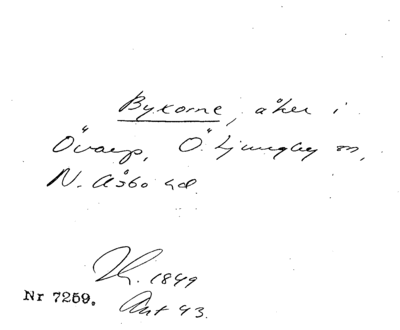 Bykorne, åker i
Övarp, Ö. Ljungby sn,
N. Åsbo hd.
1849
Nr 7259. Ant 43.